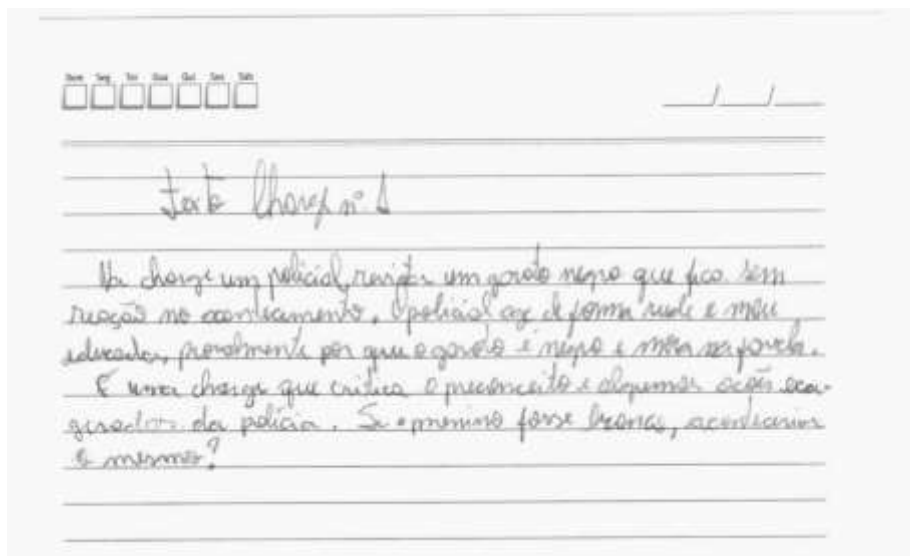 Dom Seg Ter Qua Qui Sex Sáb
__/__/__
texto Charge nº 1
Na charge um policial, revista um garoto negro que fica sem
reação no acontecimento. O policial age de forma rude e mau
educada, provalmente por que o garoto é negro e mora na favela.
É uma charge que critica o preconceito e algumas ações exa-
geradas da polícia. Se o menino fosse branco, aconteceria
o mesmo?